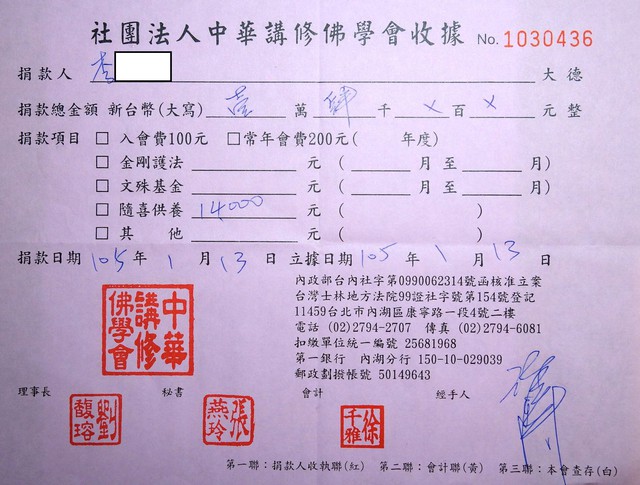 社團法人中華講修佛學會收據 No. 1030436
捐款人 李 大德
捐款總金額 新台幣(大寫) 壹 萬 肆 千 × 百 × 元 整
捐款項目 □ 入會費100元 □常年會費200元( 年度)
□ 金剛護法 元 ( 月 至 月)
□ 文殊基金 元 ( 月 至 月)
□ 隨喜供養 14000 元 ( )
□ 其 他 元 ( )
捐款日期 105 年 1 月 13 日 立據日期 105 年 1 月 13 日
內政部台內社字第0990062314號函核准立案
台灣士林地方法院99證社字號第154號登記
11459台北市內湖區康寧路一段4號二樓
電話 (02)2794-2707 傳真 (02)2794-6081
扣繳單位統一編號 25681968
第一銀行 內湖分行 150-10-029039
郵政劃撥帳號 50149643
中華講修佛學會
理事長 秘書 會計 經手人
劉馥瑢 張燕玲 徐千雅
第一聯：捐款人收執聯(紅) 第二聯：會計聯(黃) 第三聯：本會查存(白)